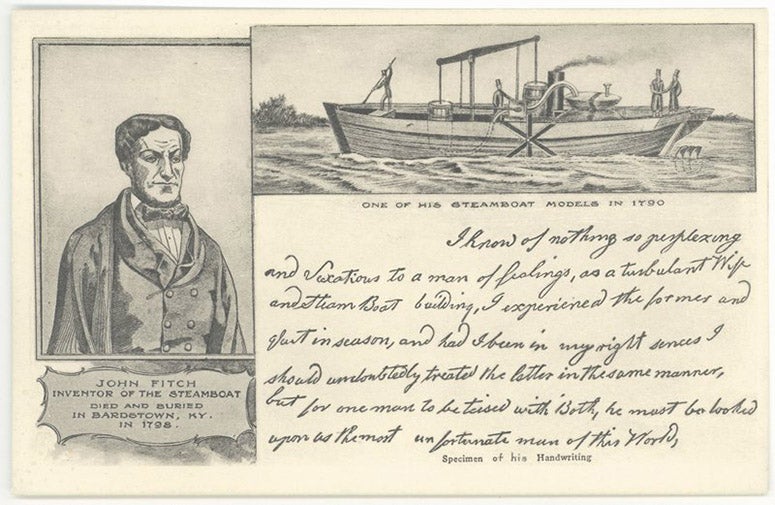 ONE OF HIS STEAMBOAT MODELS IN 1790
I know of nothing so perplexing
and Vexatious to a man of fealings, as a turbulant Wife
and Steam Boat building, I experienced the former and
quit in season, and had I been in my right sences I
should undoubtedly treated the latter in the same manner,
but for one man to be teised with Both, he must be looked
upon as the most unfortunate man of this World,
Specimen of his Handwriting
JOHN FITCH
INVENTOR OF THE STEAMBOAT
DIED AND BURIED
IN BARDSTOWN, KY.
IN 1798.